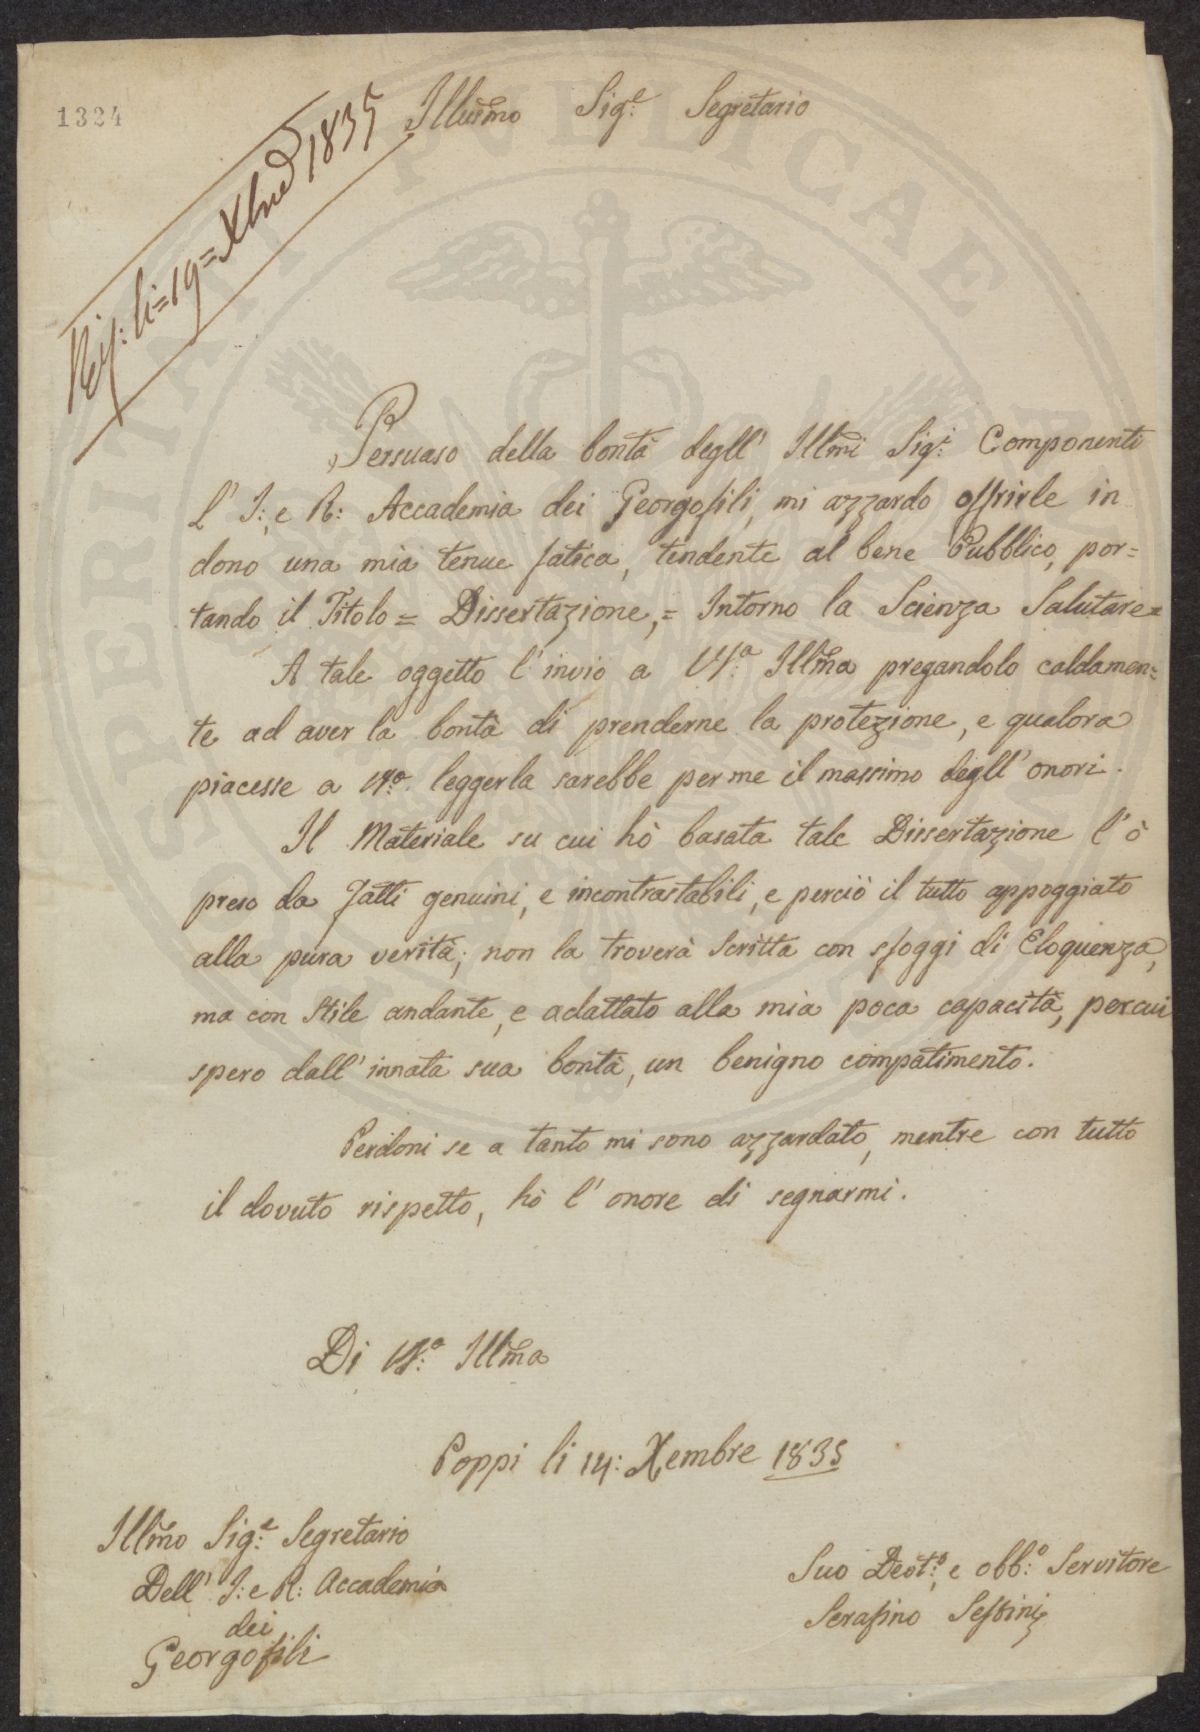 1324
Illusmo Sig.e Segretario
li=19=Xbre 1835
Persuaso della bontà degll' Illmi Sig.i Componenti
L' I: e R: Accademia dei Georgofili, mi azzardo offrirle in
dono una mia tenue fatica, tendente al bene Pubblico, por=
tando il Titolo = Dissertazione, = Intorno la Scienza Salutare=
A tale oggetto l'invio a VS.a Illma pregandolo caldamen=
te ad aver la bontà di prenderne la protezione, e qualora
piacesse a VS.a leggerla sarebbe per me il massimo degll' onori.
Il Materiale su cui hò basata tale Dissertazione l'ò
preso da Fatti genuini, e incontrastabili, e perciò il tutto appoggiato
alla pura verità; non la troverà Scritta con sfoggi di Eloquenza,
ma con Stile andante, e adattato alla mia poca capacità, percui
spero dall' innata sua bontà, un benigno compatimento.
Perdoni se a tanto mi sono azzardato, mentre con tutto
il dovuto rispetto, hò l' onore di segnarmi.
Di VS.a Illma
Poppi li 14: Xembre 1835
Illmo Sig.e Segretario
Dell' I: e R: Accademia
dei
Georgofili
Suo Devt.o e obb.o Servitore
Serafino
PERITATI PVBLICAE